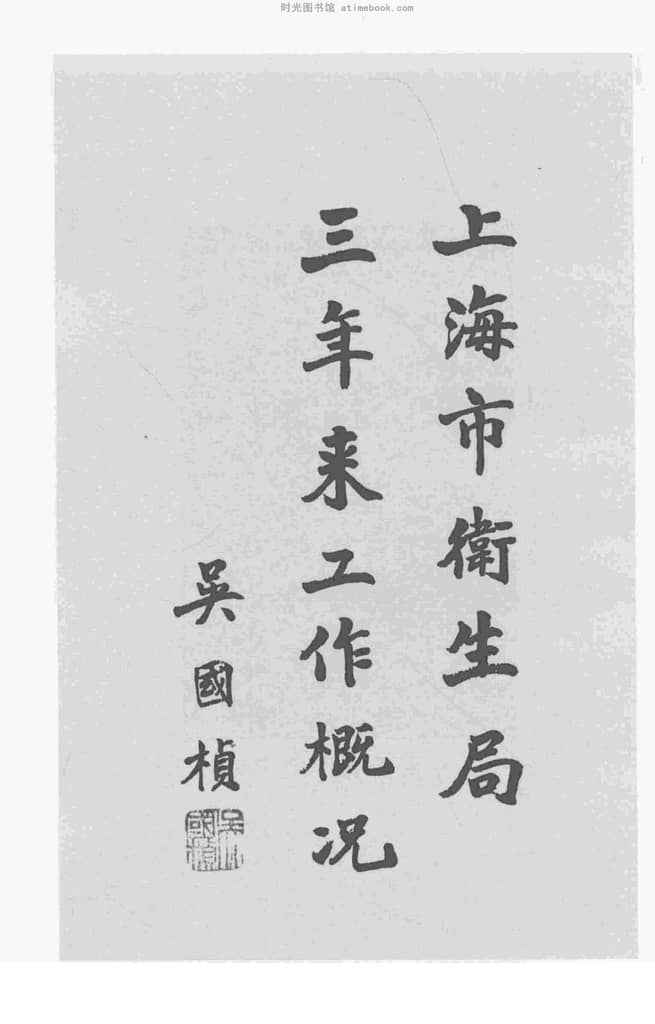 时光图书馆 atimebook.com
上海市衛生局
三年来工作概况
吳國楨